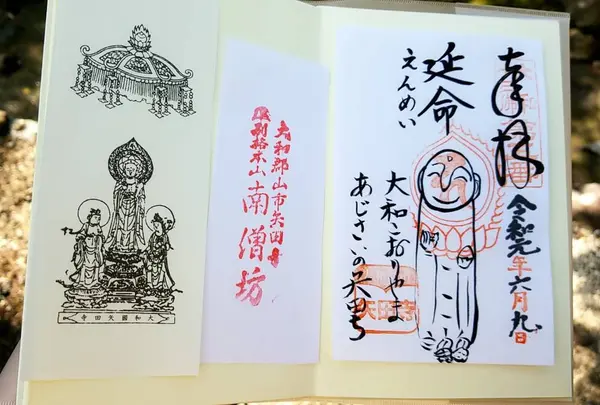 奉拝
令和元年六月九日
延命
えんめい
大和こおりやま
あじさいの矢田寺
矢田寺
大和郡山市矢田寺
別格本山 南僧坊
寺田矢國和大